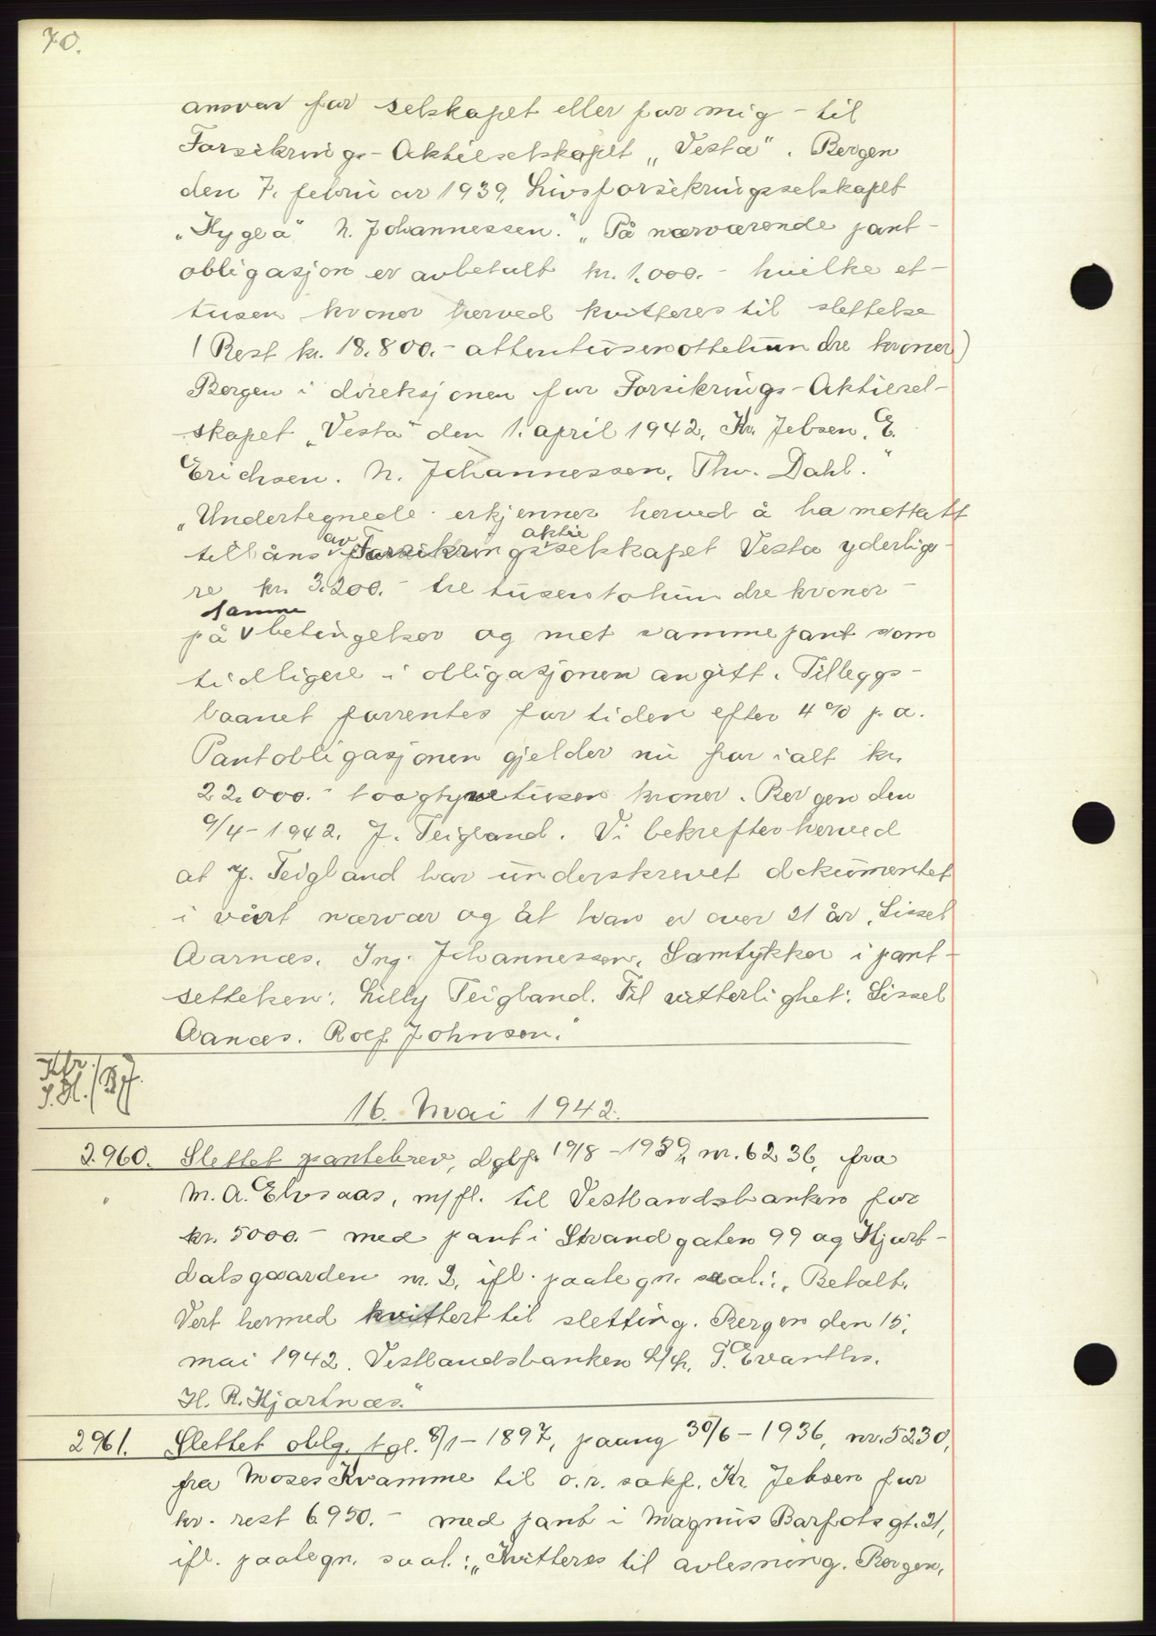 70.
ansvar for selskapet eller for mig - til
Forsikrings-Aktieselskapet „Vesta". Bergen
den 7. februar 1939. Livsforsikringsselskapet
„Hygea" N. Johannessen." „På nærværende pant-
obligasjon er avbetalt kr. 1.000.- hvilke et-
tusen kroner herved kvitteres til slettelse
(Rest kr. 18.800.- attentusenottehundre kroner)
Bergen i direksjonen for Forsikrings-Aktiesel-
skapet „Vesta" den 1. april 1942. Kr. Jebsen. E.
Erichsen. N. Johannessen. Thv. Dahl."
„Undertegnede erkjenner herved å ha mottatt
tillåns av Forsikringsaktieselskapet Vesta yderlige-
re kr. 3.200.- tre tusentohundre kroner -
på samme betingelser og met samme pant som
tidligere i obligasjonen angitt. Tilleggs-
laanet forrentes for tiden efter 4% p.a.
Pantobligasjonen gjelder nu for ialt kr.
22.000.- toogtyvetusen kroner. Bergen den
9/4-1942. J. Teigland. Vi bekrefter herved
at J. Teigland har underskrevet dokumentet
i vårt nærvær og at han er over 21 år. Sissel
Aarnæs. Ing. Johannessen. Samtykker i pant-
settelsen: Lilly Teigland. Til vitterlighet: Sissel
Aanæs. Rolf Johnsen."
16. Mai 1942.
2960. Slettet pantebrev, dgbf. 19/8-1939, nr. 6236, fra
" M. A. Elvsaas, m/fl. til Vestlandsbanken for
kr. 5000.- med pant i Strandgaten 99 og Hjort-
dalsgaarden nr. 2, ifl. paategn. saal.: „Betalt.
Vert hermed kvittert til sletting. Bergen den 15.
mai 1942. Vestlandsbanken L/L. T. Evanths.
H. R. Hjartnæs."
2961. Slettet oblg. tgl. 8/1-1897, paany 30/6-1936, nr. 5230,
fra Moses Kvamme til o.r. sakf. Kr. Jebsen for
kr. rest 6950.- med pant i Magnus Barfots gt. 21,
ifl. paategn. saal.: „Kvitteres til avlesning. Bergen,